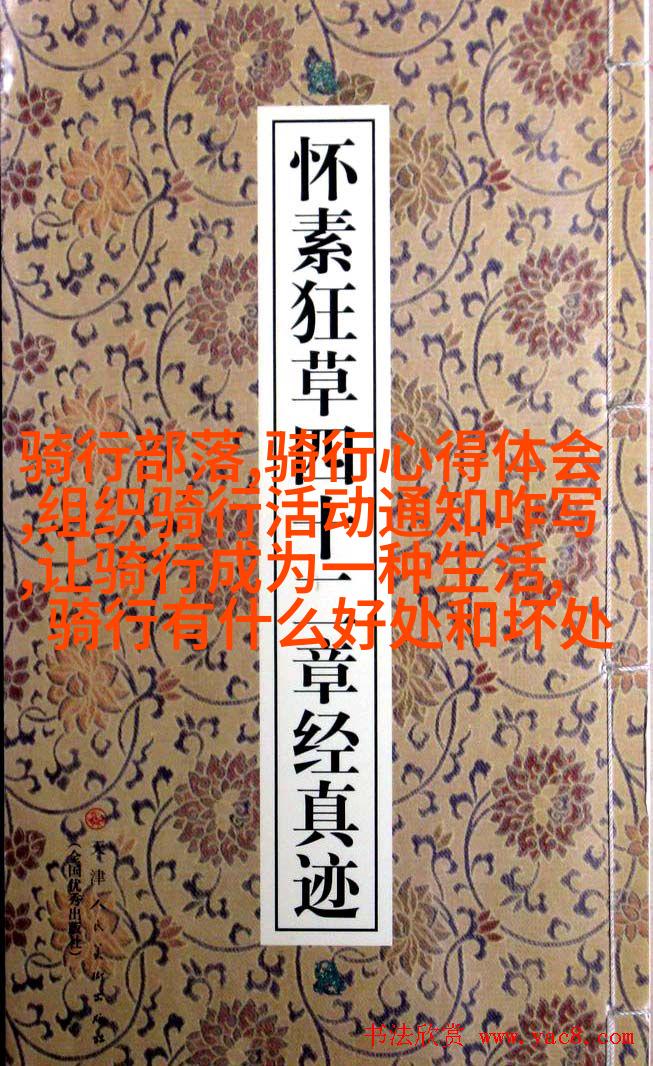 怀素狂草四十二章经真迹
骑行部落,骑行心得体会
,组织骑行活动通知咋写
,让骑行成为一种生活,
骑行有什么好处和坏处
天津人民美术出版社
(全国优秀出版社)
书法欣赏 www.yac8.com